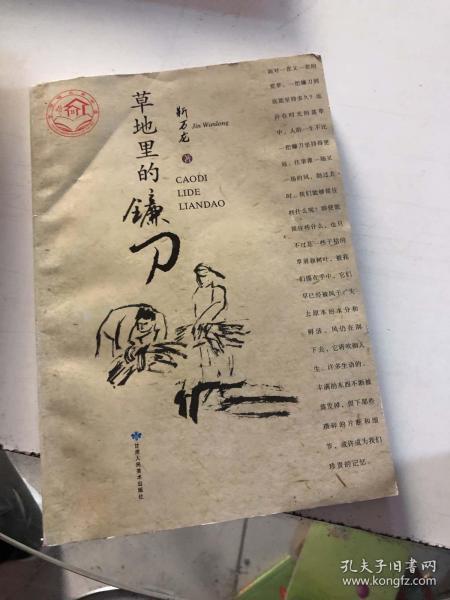 草地里的镰刀
靳万龙
Jin Wanlong
著
CAODI
LIDE
LIANDAO
面对一茬又一茬的
荒草，一把镰刀到
底能坚持多久？或
许在时光的荒草
中，人的一生不比
一把镰刀坚持得更
长。往事像一场又
一场的风，刮过去
时，我们能够抓住
些什么呢？即使能
抓住些什么，也只
不过是一些干枯的
草屑和树叶，被我
们攥在手中，它们
早已经被风干，失
去原本的水分和
鲜活。风仍在刮
下去，它将吹彻人
生。许多生动的、
丰满的东西不断被
蒸发掉，留下那些
琐碎的片断和细
节，或许成为我们
珍贵的记忆。
甘肃人民美术出版社
孔夫子旧书网
www.kongfz.com